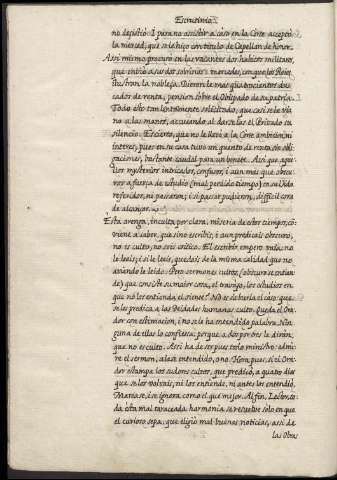 Escrutinio.
no desistió. I para no assistir a caso en la Corte acceptó
la merced, que se le hizo con titulo de Capellan de honor.
Assi mismo procuró en las vacantes dos habitos militares,
que vistió a sus dos sobrinos: mercedes, con que los Reies
ilustran la nobleza. Dieronle mas quatrocientos du-
cados de renta, pension sobre el Obispado de su patria.
Todo esto tan lentamente solicitado, que casi se le vu
no a las manos, acusando al darselas el Privado su
silencio. Es cierto, que no le llevó a la Corte ambicion, ni
interes, pues en su casa tuvo un quento de renta sin obli-
gaciones, bastante caudal para un bonete. Assi que aque-
llos mysterios intricados, confusos, i aun mas que obscu-
ros a fuerça de estudio (mal perdido tiempo) en su Vida
referidos, ni passaron; i si passar pudieron, difficil cosa
de alcançar.
Esta arenga, inculta por clara, miseria de estos tiempos, co-
viene a saber, que sino escribir, i aun predicais obscuro,
no es culto, no sois critico. El escribir empero vala; no
le leeis; i si le leeis, quedais de la misma calidad que no
aviendo le leido. Pero sermones cultos (obscuros se entien-
de) que consiste su maior cosa, el trabajo, los estudios en
que no los entienda, el oiente? No es de burla el caso: que
se les predica a las Deidades humanas culto. Queda el Ora-
dor con estimacion, i no se le ha entendido palabra. Nin-
guna de ellas lo confiessa; porque a dos por tres le dirán,
que no es culto. Assi ha de ser pues todo ministro: admi-
re el sermon, alase entendido, o no. Hem pues, si el Ora-
dor estampa los sudores cultos, que predicó, a quatro dias
que se los volvais, ni los entiende, ni antes los entendió.
Matase, i se ignora como el que mejor. Al fin, Lector, to-
da esta mal taraceada harmonia se resuelve solo en que
el curioso sepa, que eligió mal buenas noticias, assi de
las Obras